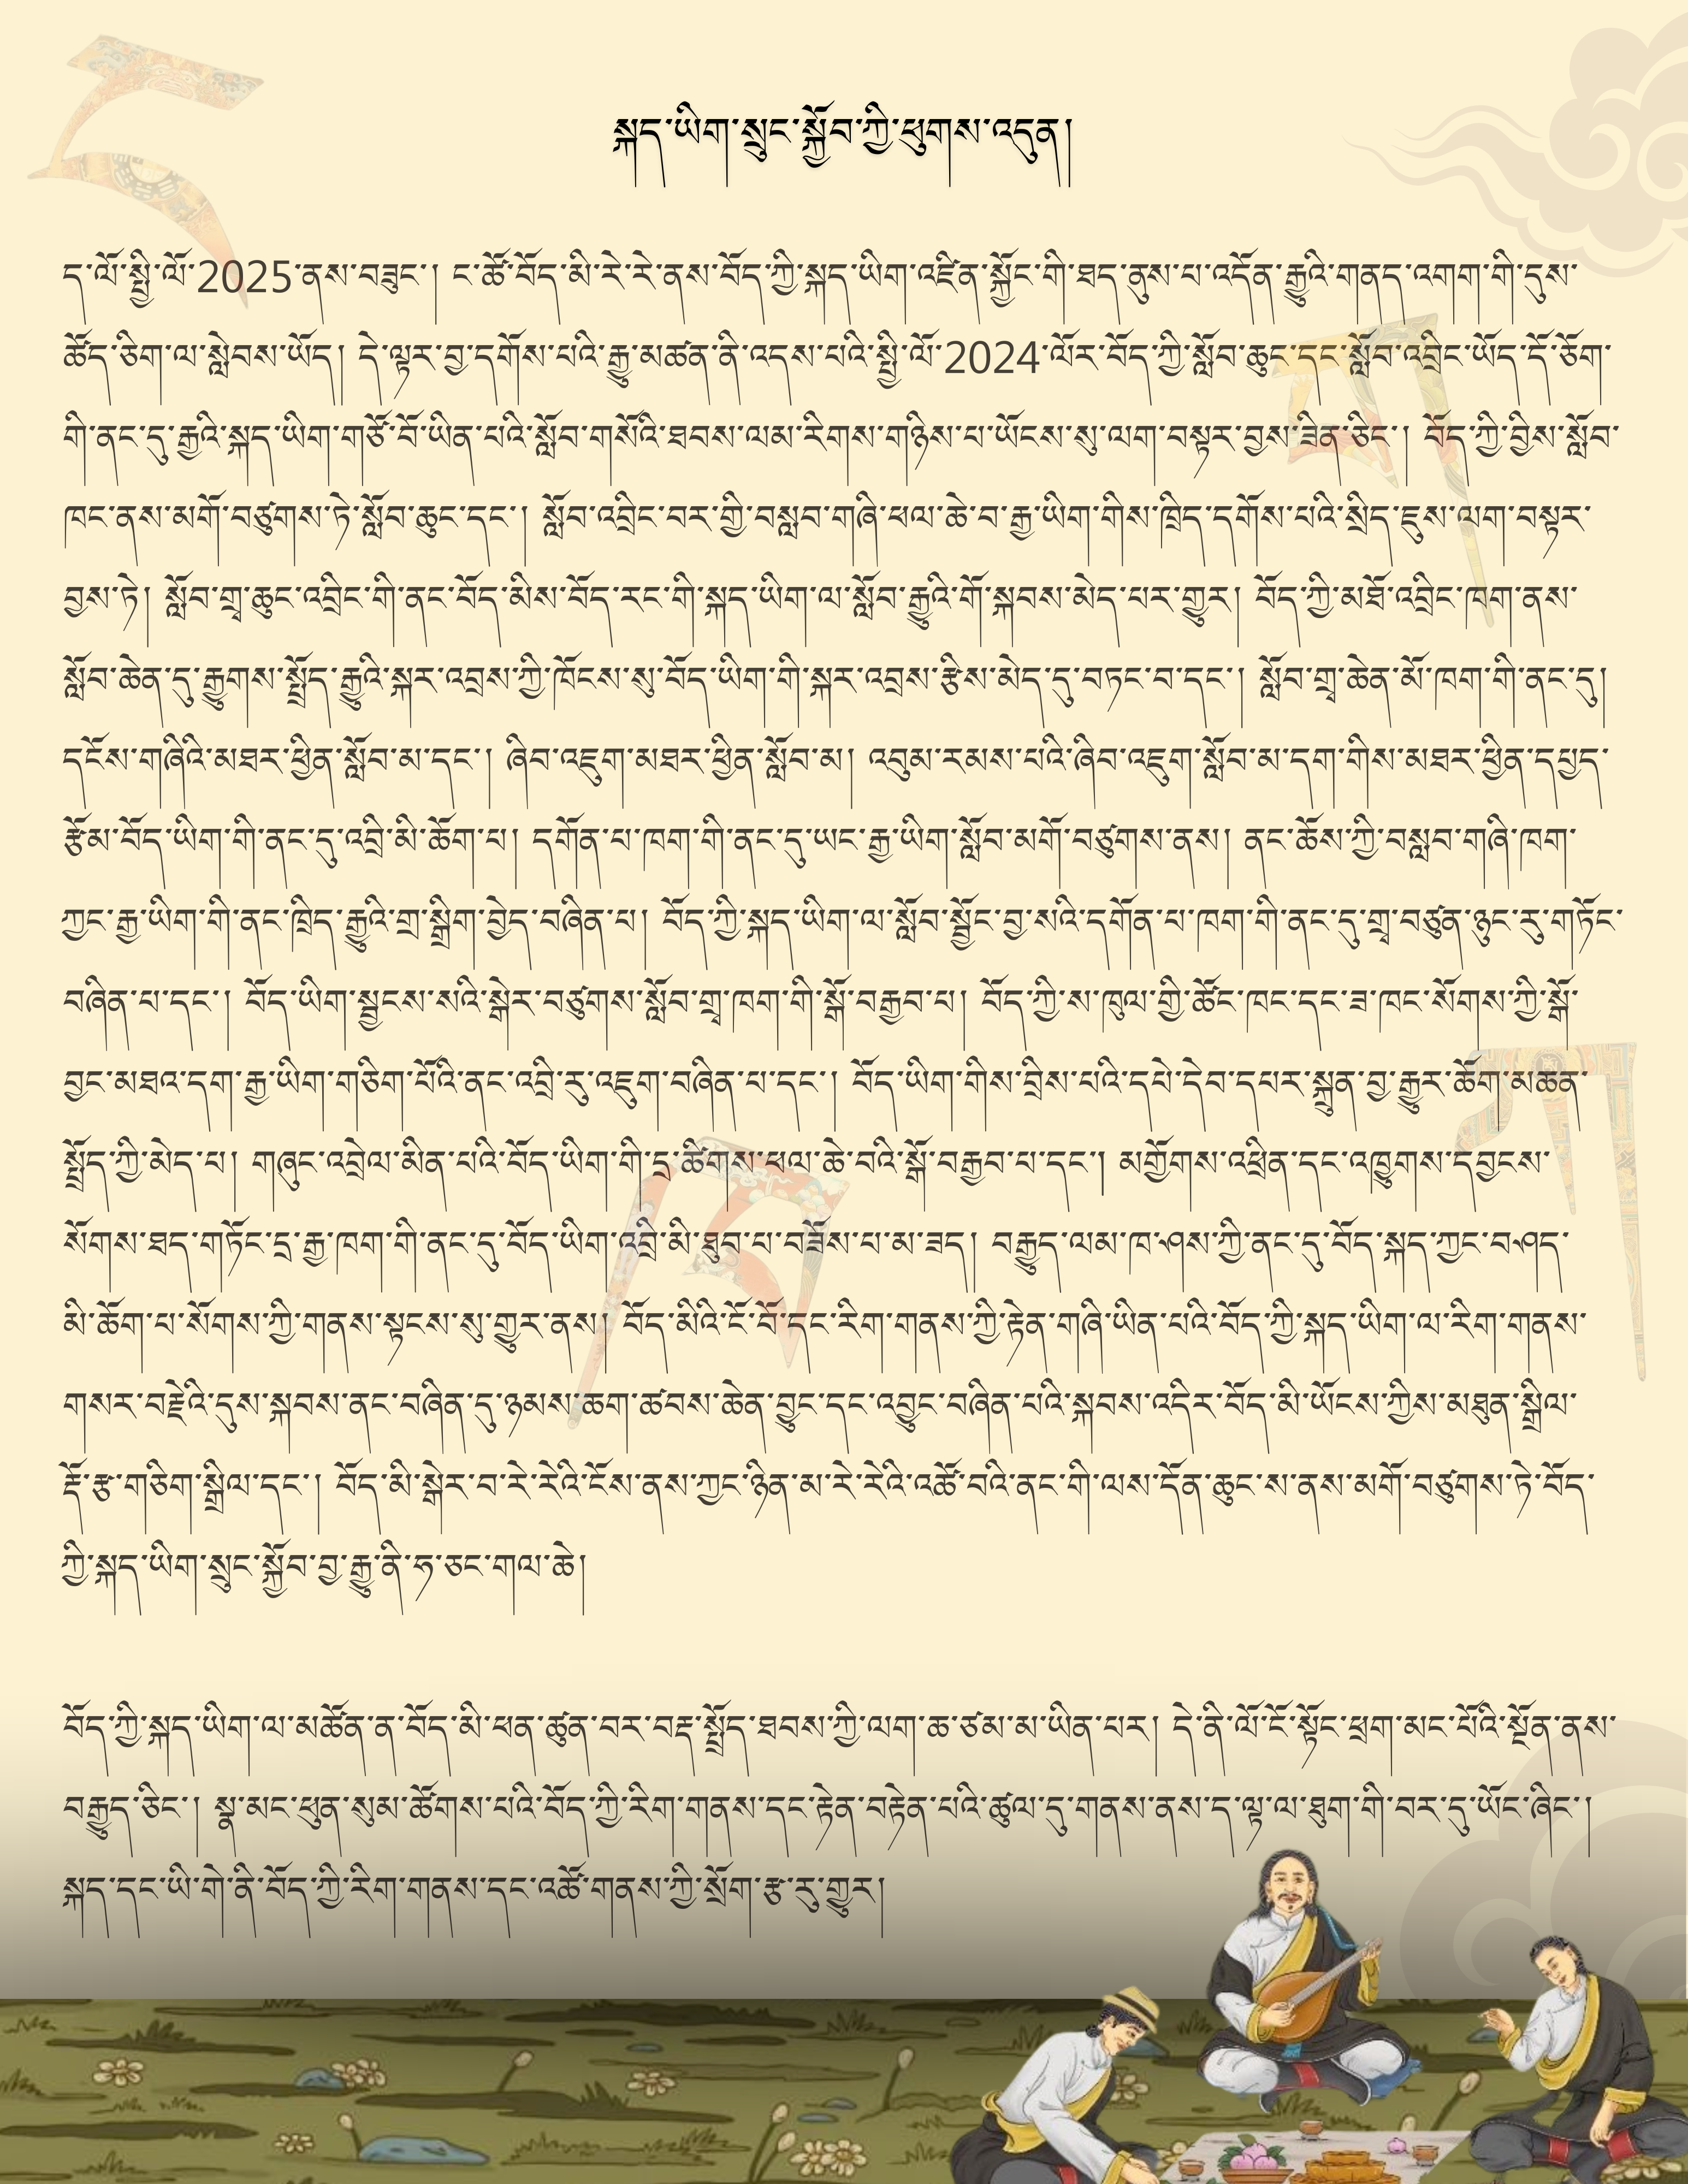 སྐད་ཡིག་སྲུང་སྐྱོབ་ཀྱི་ཕུགས་འདུན།
ད་ལོ་སྤྱི་ལོ་2025་ནས་བཟུང་། ང་ཚོ་བོད་མི་རེ་རེ་ནས་བོད་ཀྱི་སྐད་ཡིག་འཛིན་སྐྱོང་གི་ཐད་ནུས་པ་འདོན་རྒྱུའི་གནད་འགག་གི་དུས་
ཚོད་ཅིག་ལ་སླེབས་ཡོད། དེ་ལྟར་བྱ་དགོས་པའི་རྒྱུ་མཚན་ནི་འདས་པའི་སྤྱི་ལོ་2024་ལོར་བོད་ཀྱི་སློབ་ཆུང་དང་སློབ་འབྲིང་ཡོད་དོ་ཅོག་
གི་ནང་དུ་རྒྱའི་སྐད་ཡིག་གཙོ་བོ་ཡིན་པའི་སློབ་གསོའི་ཐབས་ལམ་རིགས་གཉིས་པ་ཡོངས་སུ་ལག་བསྟར་བྱས་ཟིན་ཅིང་། བོད་ཀྱི་བྱིས་སློབ་
ཁང་ནས་མགོ་བཙུགས་ཏེ་སློབ་ཆུང་དང་། སློབ་འབྲིང་བར་གྱི་བསླབ་གཞི་ཕལ་ཆེ་བ་རྒྱ་ཡིག་གིས་ཁྲིད་དགོས་པའི་སྲིད་ཇུས་ལག་བསྟར་
བྱས་ཏེ། སློབ་གྲྭ་ཆུང་འབྲིང་གི་ནང་བོད་མིས་བོད་རང་གི་སྐད་ཡིག་ལ་སློབ་རྒྱུའི་གོ་སྐབས་མེད་པར་གྱུར། བོད་ཀྱི་མཐོ་འབྲིང་ཁག་ནས་
སློབ་ཆེན་དུ་རྒྱུགས་སྤྲོད་རྒྱུའི་སྐར་འབྲས་ཀྱི་ཁོངས་སུ་བོད་ཡིག་གི་སྐར་འབྲས་རྩིས་མེད་དུ་བཏང་བ་དང་། སློབ་གྲྭ་ཆེན་མོ་ཁག་གི་ནང་དུ།
དངོས་གཞིའི་མཐར་ཕྱིན་སློབ་མ་དང་། ཞིབ་འཇུག་མཐར་ཕྱིན་སློབ་མ། འབུམ་རམས་པའི་ཞིབ་འཇུག་སློབ་མ་དག་གིས་མཐར་ཕྱིན་དཔྱད་
རྩོམ་བོད་ཡིག་གི་ནང་དུ་འབྲི་མི་ཆོག་པ། དགོན་པ་ཁག་གི་ནང་དུ་ཡང་རྒྱ་ཡིག་སློབ་མགོ་བཙུགས་ནས། ནང་ཆོས་ཀྱི་བསླབ་གཞི་ཁག་
ཀྱང་རྒྱ་ཡིག་གི་ནང་ཁྲིད་རྒྱུའི་གྲ་སྒྲིག་བྱེད་བཞིན་པ། བོད་ཀྱི་སྐད་ཡིག་ལ་སློབ་སྦྱོང་བྱ་སའི་དགོན་པ་ཁག་གི་ནང་དུ་གྲྭ་བཙུན་ཉུང་རུ་གཏོང་
བཞིན་པ་དང་། བོད་ཡིག་སྦྱངས་སའི་སྒེར་བཙུགས་སློབ་གྲྭ་ཁག་གི་སྒོ་བརྒྱབ་པ། བོད་ཀྱི་ས་ཁུལ་གྱི་ཚོང་ཁང་དང་ཟ་ཁང་སོགས་ཀྱི་སྒོ་
བྱང་མཐའ་དག་རྒྱ་ཡིག་གཅིག་པོའི་ནང་འབྲི་རུ་འཇུག་བཞིན་པ་དང་། བོད་ཡིག་གིས་བྲིས་པའི་དཔེ་དེབ་དཔར་སྐྲུན་བྱ་རྒྱུར་ཆོག་མཆན་
སྤྲོད་ཀྱི་མེད་པ། གཞུང་འབྲེལ་མིན་པའི་བོད་ཡིག་གི་དྲ་ཚིགས་ཕལ་ཆེ་བའི་སྒོ་བརྒྱབ་པ་དང་། མགྱོགས་འཕྲིན་དང་འཁྱུགས་དབྱངས་
སོགས་ཐད་གཏོང་དྲ་རྒྱ་ཁག་གི་ནང་དུ་བོད་ཡིག་འབྲི་མི་ཐུབ་པ་བཟོས་པ་མ་ཟད། བརྒྱུད་ལམ་ཁ་ཤས་ཀྱི་ནང་དུ་བོད་སྐད་ཀྱང་བཤད་
མི་ཆོག་པ་སོགས་ཀྱི་གནས་སྟངས་སུ་གྱུར་ནས། བོད་མིའི་ངོ་བོ་དང་རིག་གནས་ཀྱི་རྟེན་གཞི་ཡིན་པའི་བོད་ཀྱི་སྐད་ཡིག་ལ་རིག་གནས་
གསར་བརྗེའི་དུས་སྐབས་ནང་བཞིན་དུ་ཉམས་ཆག་ཚབས་ཆེན་བྱུང་དང་འབྱུང་བཞིན་པའི་སྐབས་འདིར་བོད་མི་ཡོངས་ཀྱིས་མཐུན་སྒྲིལ་
རྡོ་རྩ་གཅིག་སྒྲིལ་དང་། བོད་མི་སྒེར་བ་རེ་རེའི་ངོས་ནས་ཀྱང་ཉིན་མ་རེ་རེའི་འཚོ་བའི་ནང་གི་ལས་དོན་ཆུང་ས་ནས་མགོ་བཙུགས་ཏེ་བོད་
ཀྱི་སྐད་ཡིག་སྲུང་སྐྱོབ་བྱ་རྒྱུ་ནི་ཧ་ཅང་གལ་ཆེ།
བོད་ཀྱི་སྐད་ཡིག་ལ་མཚོན་ན་བོད་མི་ཕན་ཚུན་བར་བརྡ་སྤྲོད་ཐབས་ཀྱི་ལག་ཆ་ཙམ་མ་ཡིན་པར། དེ་ནི་ལོ་ངོ་སྟོང་ཕྲག་མང་པོའི་སྔོན་ནས་
བརྒྱུད་ཅིང་། སྣ་མང་ཕུན་སུམ་ཚོགས་པའི་བོད་ཀྱི་རིག་གནས་དང་རྟེན་བརྟེན་པའི་ཚུལ་དུ་གནས་ནས་ད་ལྟ་ལ་ཐུག་གི་བར་དུ་ཡོང་ཞིང་།
སྐད་དང་ཡི་གེ་ནི་བོད་ཀྱི་རིག་གནས་དང་འཚོ་གནས་ཀྱི་སྲོག་རྩ་རུ་གྱུར།